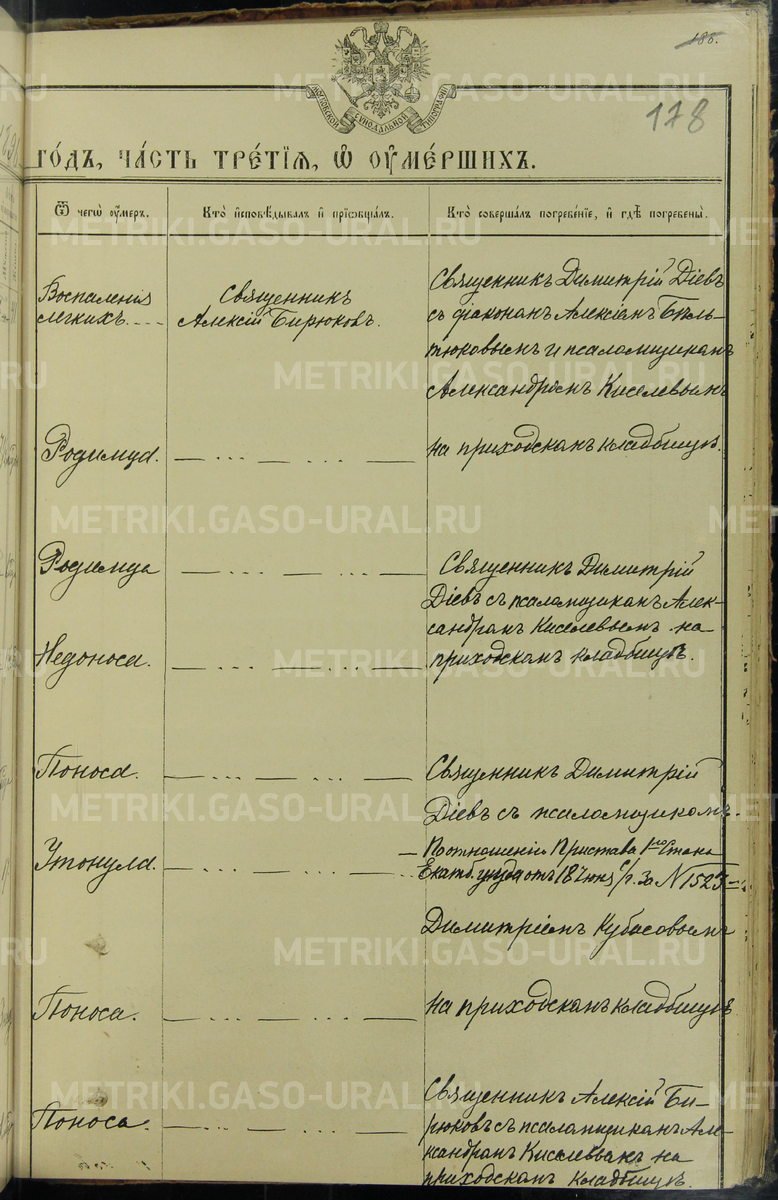 188.
178
МОСКОВСКОЙ СѴНОДАЛЬНОЙ ТИПОГРАФІИ
ГО́ДЪ, ЧА́СТЬ ТРЕ́ТІЯ, Ѡ҆ ОУ҆МЕ́РШИХЪ.
Ѿ чегѡ̀ оу҆́меръ.
Кто̀ и҆сповѣ́дывалъ и҆ прїѡбща́лъ.
Кто̀ соверша́лъ погребе́нїе, и҆ гдѣ̀ погребены̀.
Воспаленія
легкихъ.
Священникъ
Алексій Бирюковъ.
Священникъ Димитрій Діевъ
съ діакономъ Алексіемъ
тюковымъ и псаломщикомъ
Александромъ Киселевымъ
Родимца.
на приходскомъ кладбищѣ.
Родимца
Священникъ Димитрій
Діевъ съ псаломщикомъ Алек-
сандромъ Киселевымъ на
Недоноса.
приходскомъ кладбищѣ.
Поноса.
Священникъ Димитрій
Діевъ съ псаломщикомъ.
Утонула.
По отношенію Пристава 1го Стана
Екатб. уѣзда отъ 18 Іюня с/г. за N 1523
Димитріемъ Кубасовымъ
Поноса.
на приходскомъ кладбищѣ
Поноса.
Священникъ Алексій Би-
рюковъ съ псаломщикомъ Але-
ксандромъ Киселевымъ на
приходскомъ кладбищѣ.
METRIKI.GASO-URAL.RU